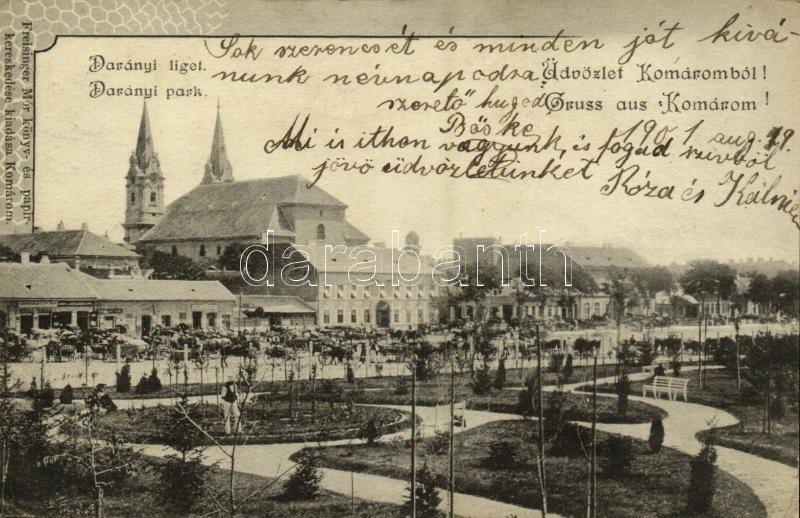 Freisinger Mór könyv- és papir-
kereskedése kiadása Komárom.
Darányi liget.
Darányi park.
Üdvözlet Komáromból!
Gruss aus Komárom!
Sok szerencsét és minden jót kivá-
nunk névnapodra
szerető hugod
Böske
1901 aug. 19.
Mi is itthon vagyunk, is fogad szivből
jövő üdvözletünket Róza és Kálmán
darabanth.com